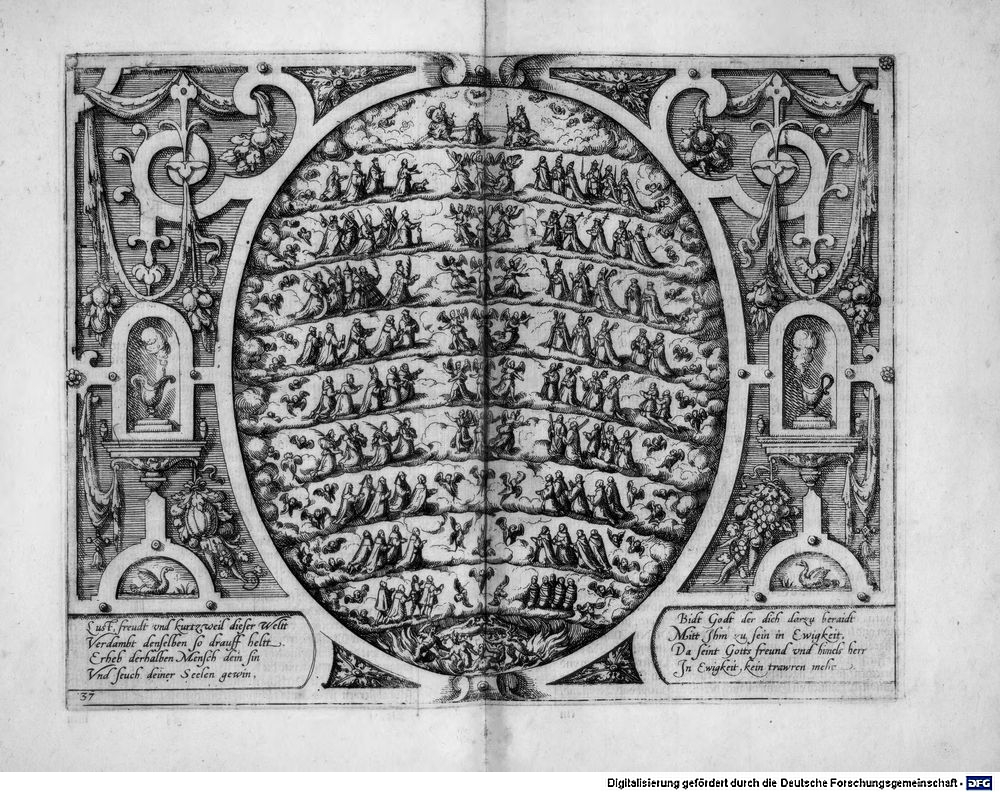 Lust, freudt vnd kurtzweil dieser Welt
Verdambt denselben so drauff helt.
Erheb derhalben Mensch dein sin
Vnd seuch deiner Seelen gewin,
37
Bidt Godt der dich darzu beraidt
Mitt Ihm zu sein in Ewigkeit,
Da seint Gotts freund vnd himels herr
In Ewigkeit, kein trawren mehr.
Digitalisierung gefördert durch die Deutsche Forschungsgemeinschaft - DFG